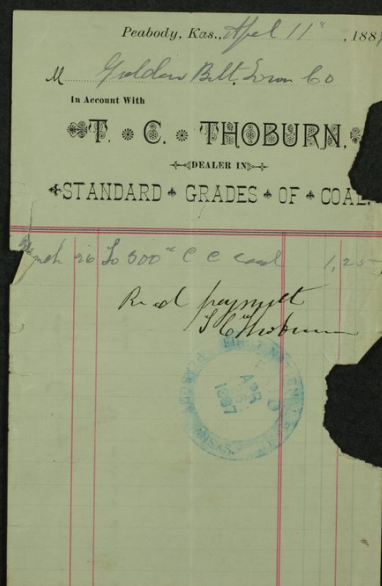 Peabody, Kas., Apl 11" 188
M Golden Belt Loan Co
In Account With
T. C. THOBURN,
DEALER IN
STANDARD GRADES OF COAL
March 26 To 500# C C coal 1,25
Rec'd payment
T C Thoburn
FIRST NATIONAL BANK
APR
1887
KANSAS